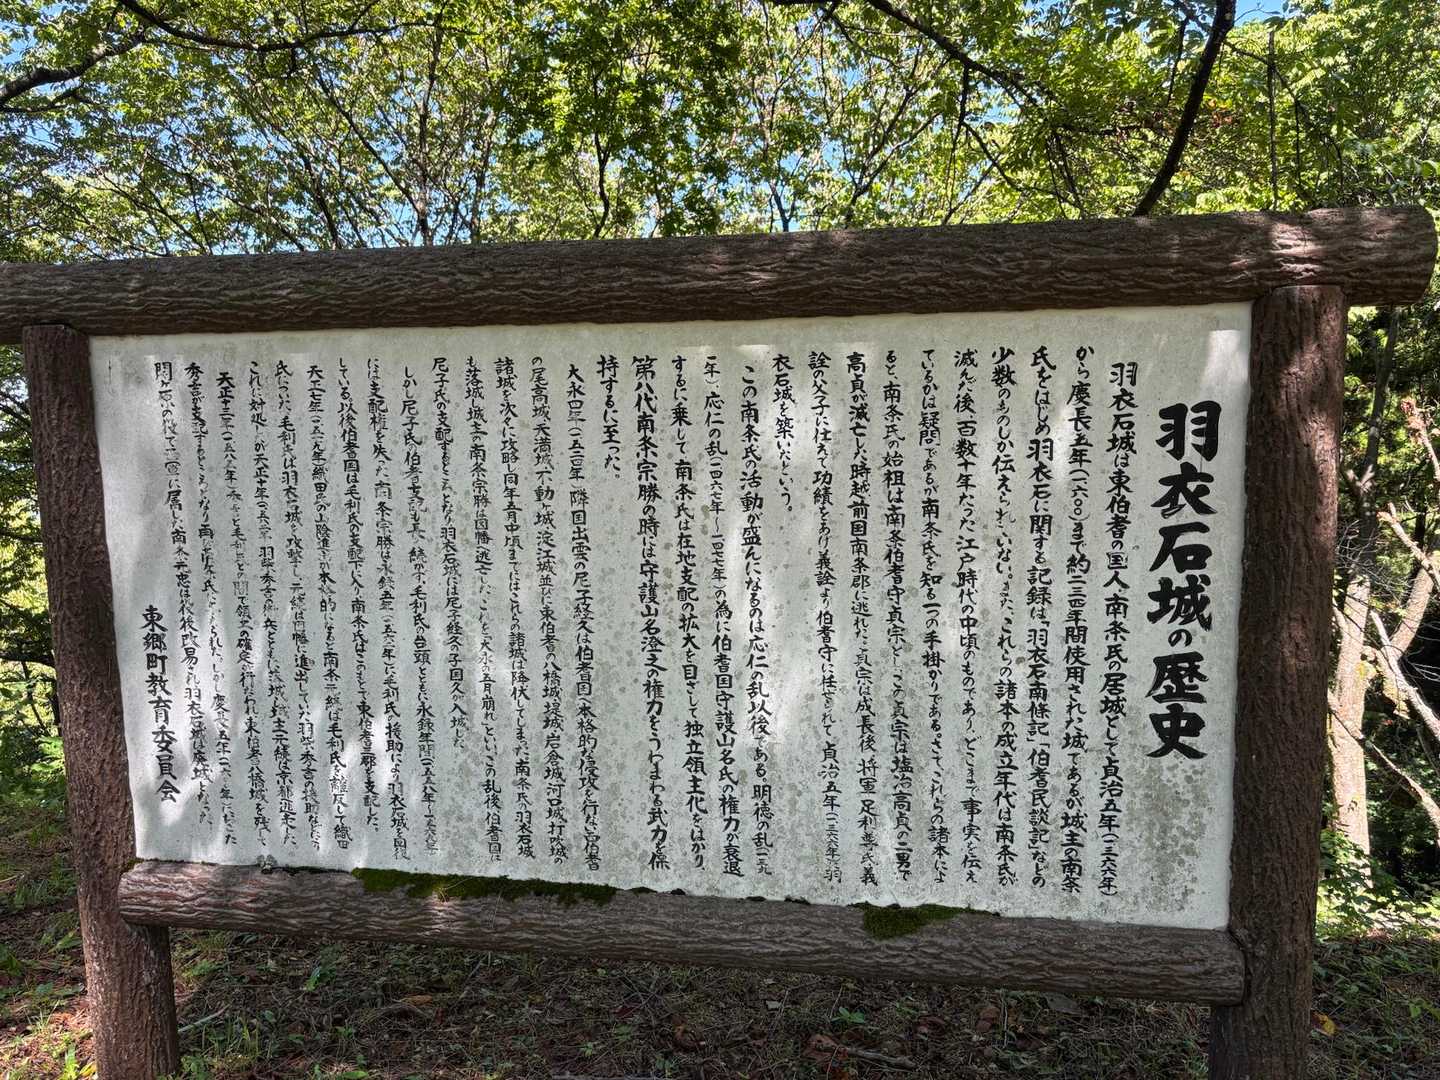 羽衣石城の歴史
羽衣石城は東伯耆の国人・南条氏の居城として貞治五年(一三六六年)
から慶長五年(一六〇〇)まで約二三四年間使用された城であるが城主の南条
氏をはじめ、羽衣石に関する記録は、「羽衣石南條記」「伯耆民談記」などの
少数のものしか伝えられていない。また、これらの諸本の成立年代は南条氏が
滅んだ後、百数十年たった江戸時代の中頃のものであり、どこまで事実を伝え
ているかは疑問であるが南条氏を知る一つの手掛かりである。さて、これらの諸本によ
ると、南条氏の始祖は南条伯耆守貞宗とし、この貞宗は塩冶高貞の二男で
高貞が滅亡した時越前国南条郡に逃れたこ貞宗は成長後、将軍足利尊氏、義
詮の父子に仕えて功績をあげ義詮より伯耆守に任ぜられて、貞治五年(一三六六年)羽
衣石城を築いたという。
この南条氏の活動が盛んになるのは応仁の乱以後である。明徳の乱(一三九
一年)、応仁の乱(一四六七年～一四七七年)の為に伯耆国守護山名氏の権力が衰退
するに乗して、南条氏は在地支配の拡大を目ざして独立領主化をはかり、
第八代南条宗勝の時には守護山名澄之の権力をうわまわる武力を保
持するに至った。
大永四年(一五二四年)隣国出雲の尼子経久は伯耆国へ本格的な侵攻を行ない西伯耆
の尾高城、天満城、不動ヶ城、淀江城並びに東伯耆の八橋城、堤城、岩倉城、河口城、打吹城の
諸城を次々に攻略し同年五月中頃までにはこれらの諸城は降伏してしまった。南条氏の羽衣石城
も落城、城主の南条宗勝は因幡へ逃亡した。これを「大永の五月崩れ」といいこの乱後伯耆国は
尼子氏の支配するところとなり羽衣石城には尼子経久の子国久が入城した。
しかし尼子氏の伯耆支配も長く続かず、毛利氏の台頭とともに永禄年間(一五五八年～一五六九年)
には支配権を失った。南条宗勝は永禄五年(一五六二年)に毛利氏の援助により羽衣石城を回復
している。以後伯耆国は毛利氏の支配下に入り南条氏はこのもとで東伯耆三郡を支配した。
天正七年(一五七九年)織田氏の山陰進攻が本格的になると南条元続は毛利氏を離反して織田
氏についた。毛利氏は羽衣石城を攻撃し、元続は因幡に進出していた羽柴秀吉の援助などで
これに対処したが天正十年(一五八二年)羽柴秀吉の撤兵とともに落城、城主元続は京都へ逃亡した。
天正十三年(一五八五年)秀吉と毛利氏との間で領土の確定が行なわれ、東伯耆は八橋城を残して
秀吉が支配するところとなり再び南条氏に与えられた。しかし慶長五年(一六〇〇年)におこった
関ヶ原の役で西軍に属した南条元忠は役後改易され羽衣石城は廃城となった。
東郷町教育委員会